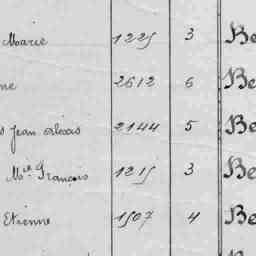 Marie 1225 3 Be
ne 2612 6 Be
s Jean Alexis 2144 5 Be
Mel François 1215 3 Be
Etienne 1507 4 Be